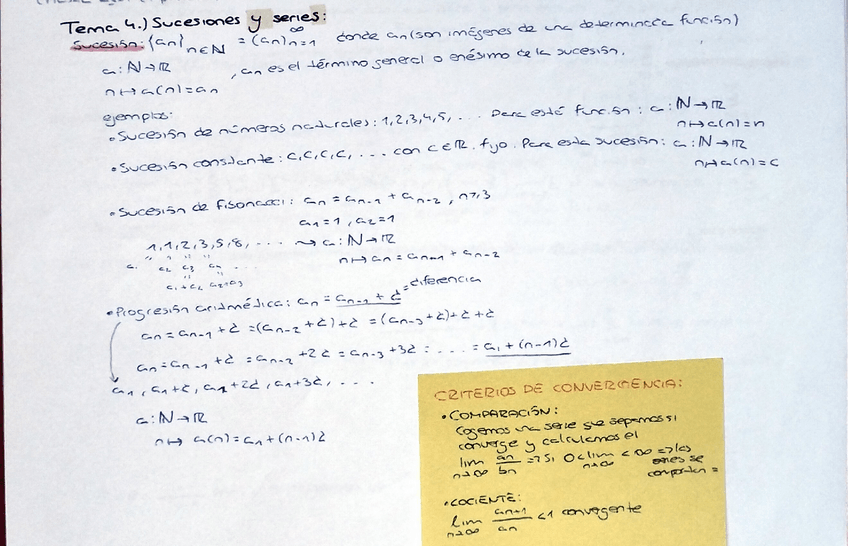 Tema 4.) Sucesiones y series:
Sucesión: {an}n∈N = (an)∞n=1 donde an (son imágenes de una determinada función)
a: N→R , an es el término general o enésimo de la sucesión.
n↦a(n)=an
ejemplos:
• Sucesión de números naturales: 1,2,3,4,5, ... Para está función: a: N→R
n↦a(n)=n
• Sucesión constante: c,c,c,c, ... con c∈R. fijo. Para esta sucesión: a: N→R
n↦a(n)=c
• Sucesión de Fibonacci: an = an-1 + an-2 , n≥3
a1=1, a2=1
1,1,2,3,5,8, ... ⇝ a: N→R
n↦an = an-1 + an-2
a1 a2 a3 a4 ...
a1+a2 a2+a3
• Progresión aritmética: an = an-1 + d = diferencia
an = an-1 + d = (an-2 + d) + d = (an-3 + d) + d + d
an = an-1 + d = an-2 + 2d = an-3 + 3d = ... = a1 + (n-1)d
a1, a1+d, a1+2d, a1+3d, ...
a: N→R
n↦ a(n) = a1 + (n-1)d
CRITERIOS DE CONVERGENCIA:
• COMPARACIÓN:
Cogemos una serie que sepamos si
converge y calculamos el
lim n→∞ an/bn => Si 0<lim n→∞ <∞ => las
series se
comportan =
• COCIENTE:
lim n→∞ an+1/an <1 convergente